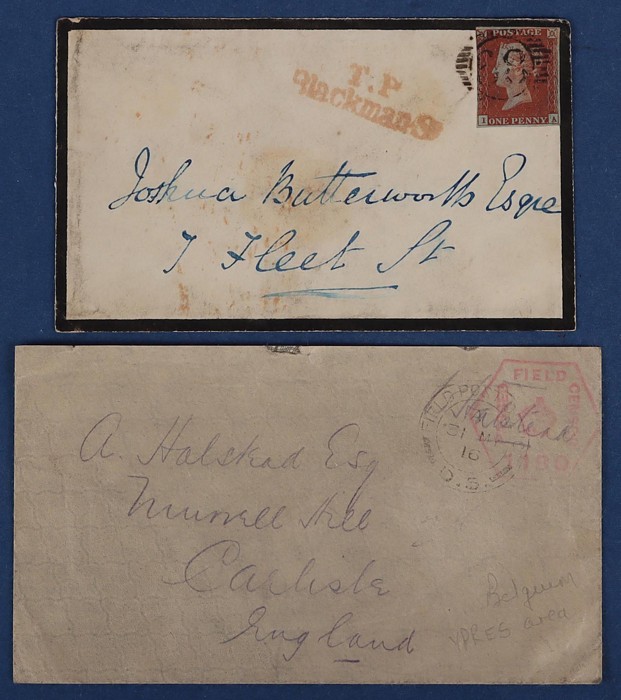 POSTAGE
ONE PENNY
I A
T.P
Blackman-St
Joshua Butterworth Esqre
7 Fleet St
FIELD CENSOR
1180
FIELD POST
16
Halstead
A. Halstead Esq
Murrell Hill
Carlisle
England
Belgium
YPRES area